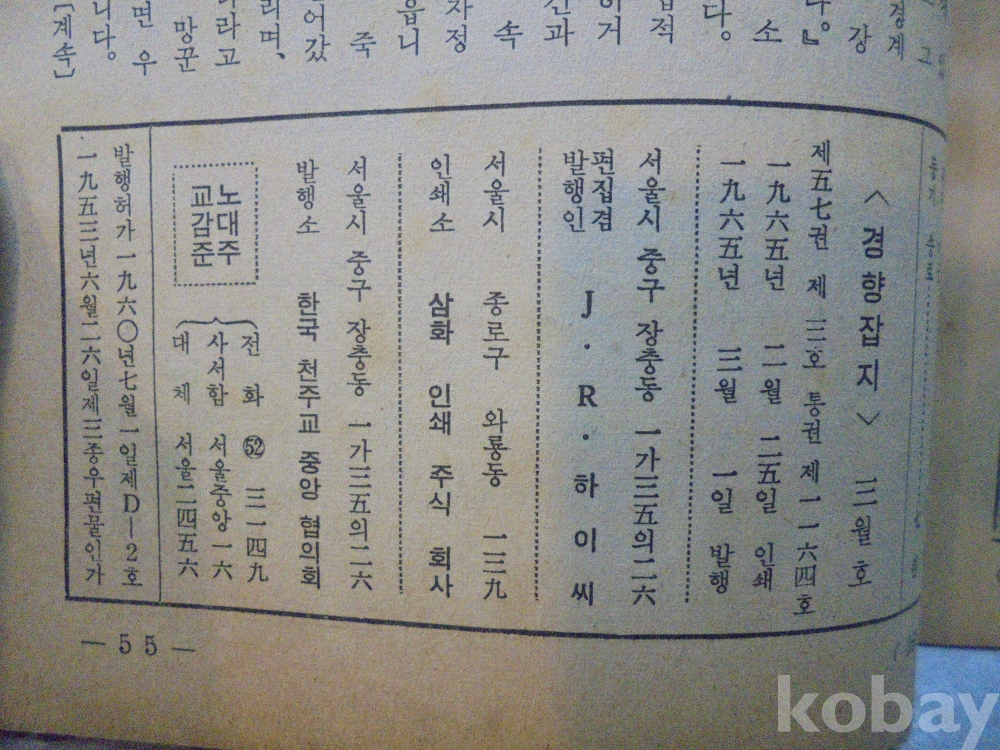 <경향잡지> 三월 호
제五七권 제 三호 통권 제一一六四호
一九六五년 二월 二五일 인쇄
一九六五년 三월 一일 발행
서울시 중구 장충동 一가三五의二六
편집겸
발행인 J·R·하이씨
서울시 종로구 와룡동 一三九
인쇄소 삼화 인쇄 주식 회사
서울시 중구 장충동 一가三五의二六
발행소 한국 천주교 중앙 협의회
노대주
교감준
전화 52 三一四九
사서함 서울중앙 一六
대체 서울二四五六
발행허가一九六〇년七월一일제D—2호
一九五三년六월二六일제三종우편물인가
[계속]
—55—
kobay